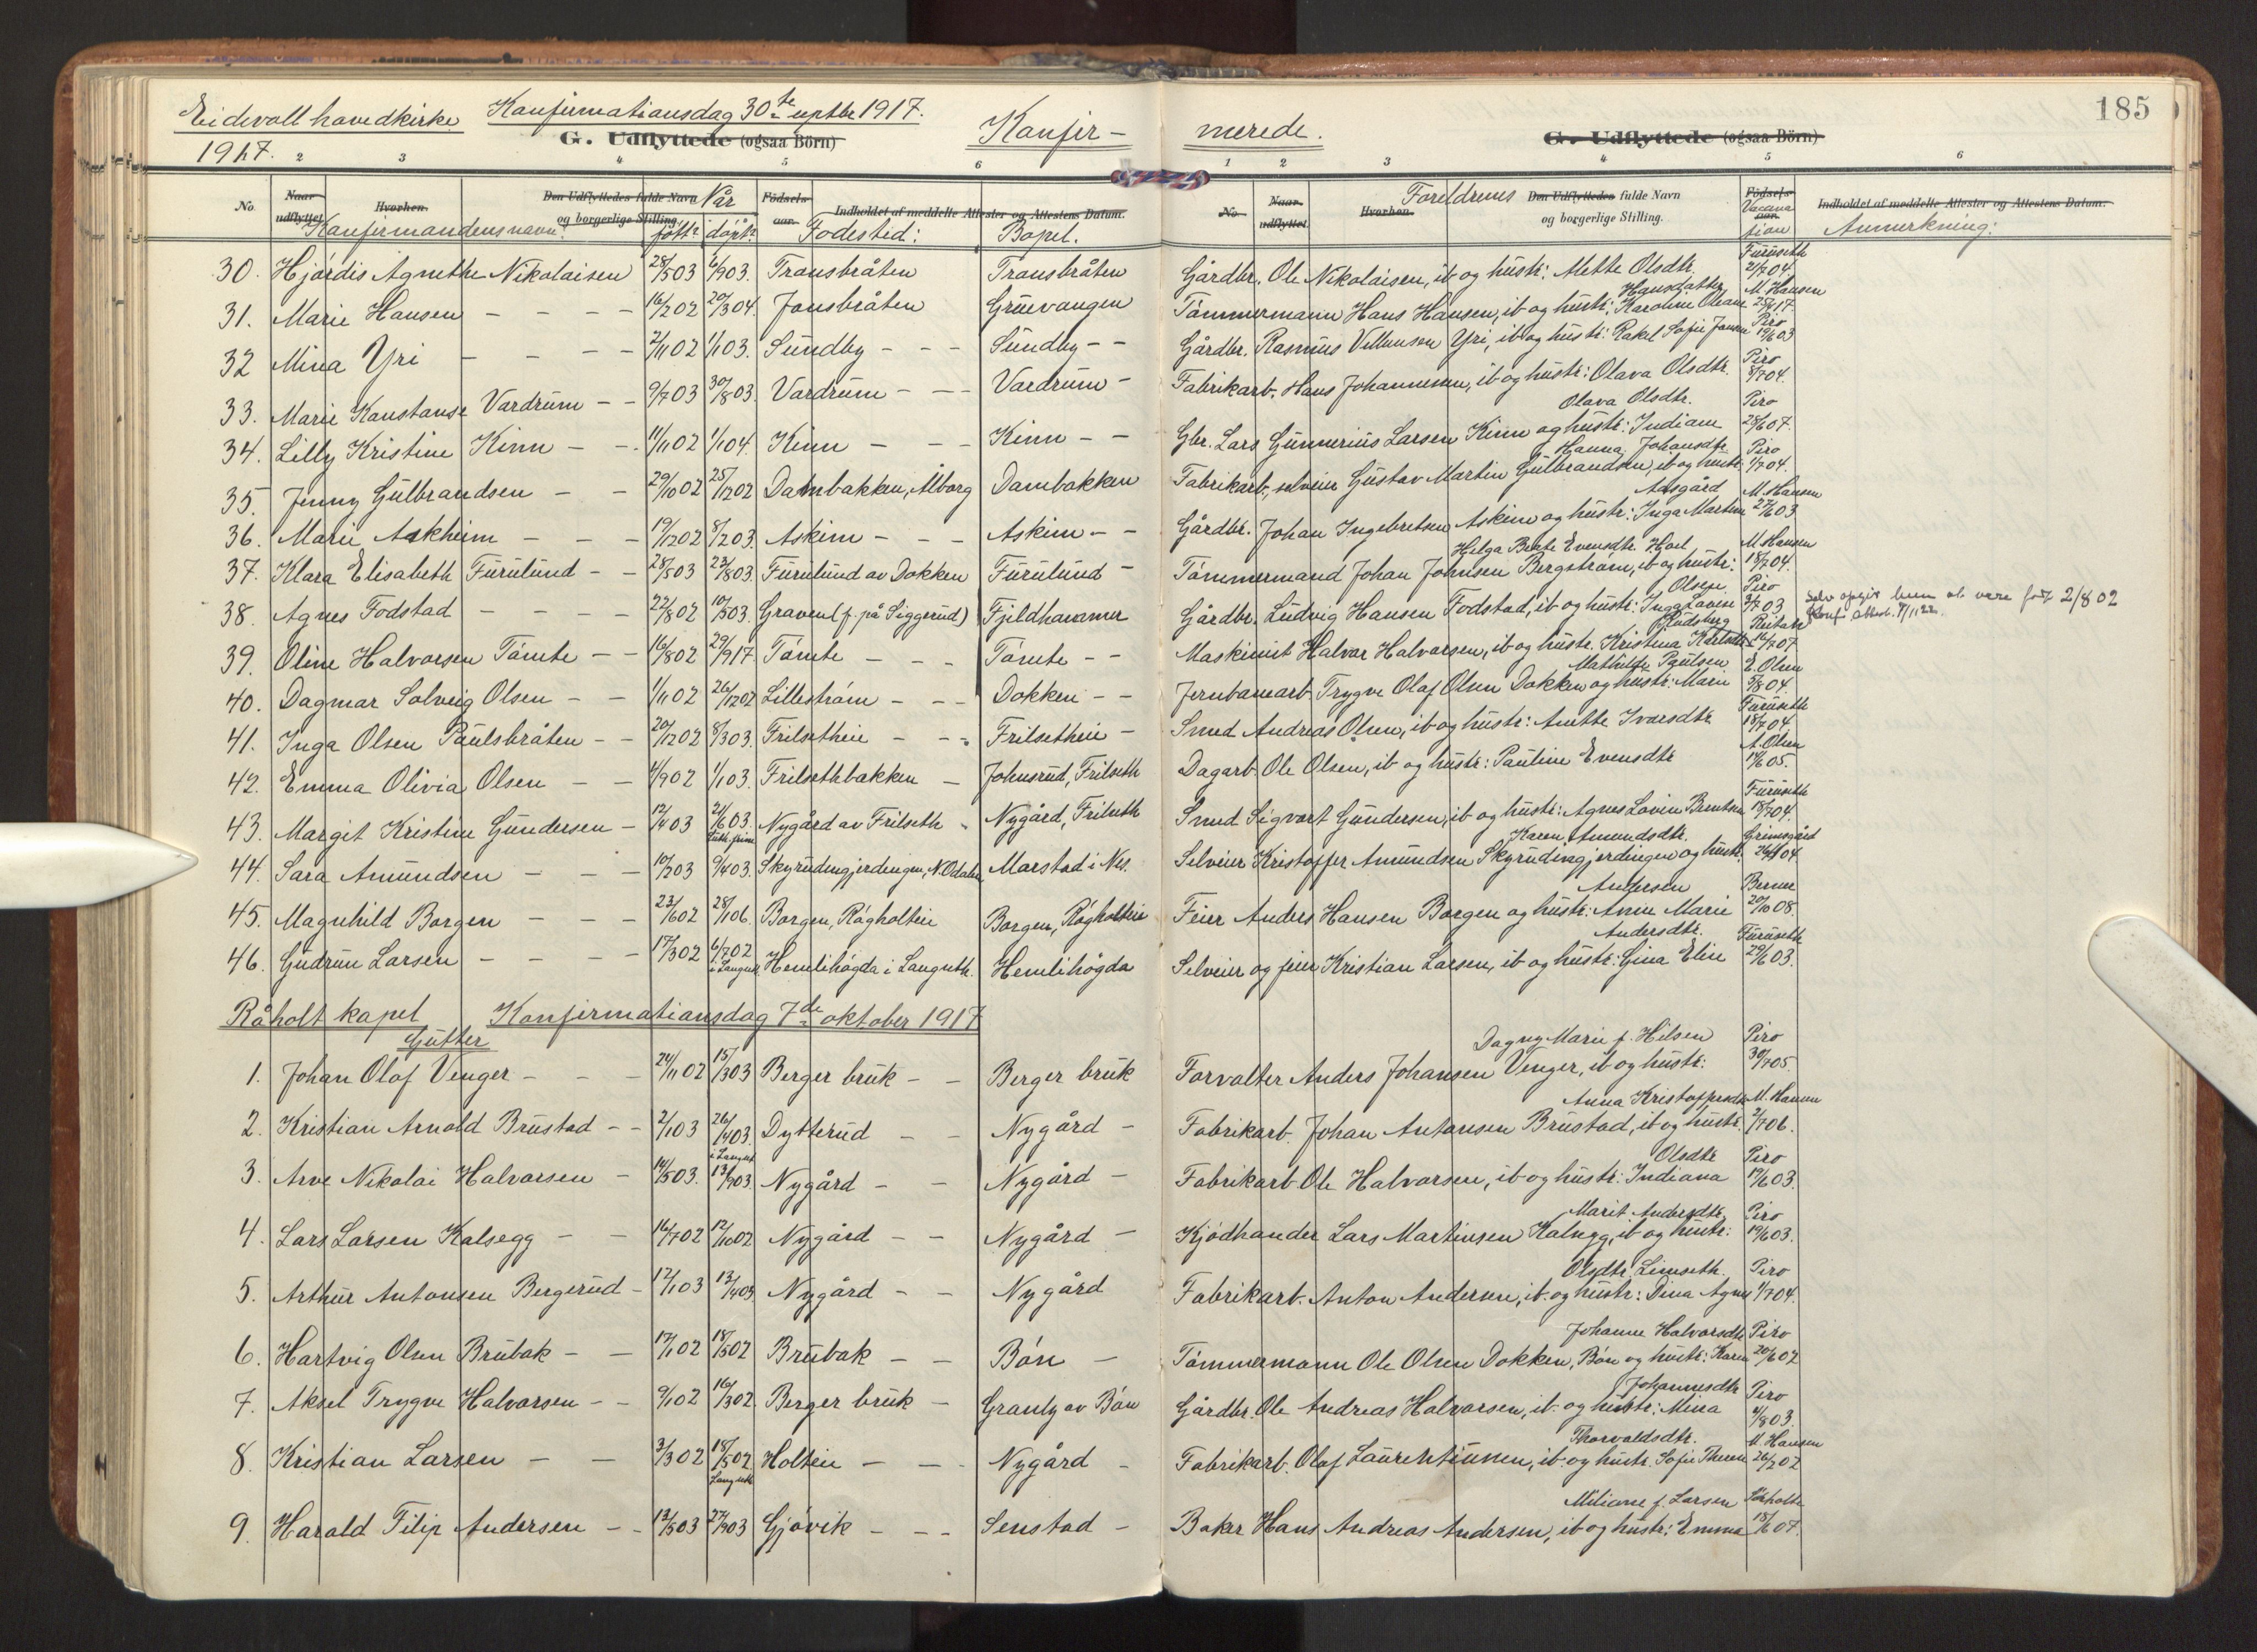 Eidsvoll hovedkirke Konfirmationsdag 30te septbr 1917. Konfir- merede. 185
1917. G. Udflyttede (ogsaa Börn) G. Udflyttede (ogsaa Börn)
2 3 4 5 6 1 2 3 4 5 6
No. Naar udflyttet Hvorhen. Den Udflyttedes fulde Navn og borgerlige Stilling. Når Födsels-aar. Indholdet af meddelte Attester og Attestens Datum. No. Naar udflyttet Hvorhen. Foreldrenes Den Udflyttedes fulde Navn og borgerlige Stilling. Födsels-aar Vacanation Indholdet af meddelte Attester og Attestens Datum.
Konfirmandens navn: født: døpt: Fødested: Bopel. Anmerkning:
30. Hjørdis Agnethe Nikolaisen 28/5 03 6/9 03. Transbråten Transbråten Gårdbr. Ole Nikolaisen, ib og hustr: Mette Olsdtr. Furuseth 21/7 04.
31. Marie Hansen - - - - 16/2 02 20/3 04. Jonsbråten Gruevangen Tømmermann Hans Hansen, ib og hustr: Karoline Oleane Hansdatter M. Hansen 25/8 17.
32 Mina Yri - - - - 2/11 02 1/1 03. Sundby - - - Sundby - - Gårdbr. Rasmus Villumsen Yri, ib og hustr: Rakel Sofie Jonsen Piro 19/6 03
33. Marie Konstanse Vardrum - - 9/7 03 30/8 03. Vardrum - - - Vardrum - Fabrikarb. Hans Johannesen, ib og hustr: Olava Olsdtr. Piro 8/7 04.
34. Lilly Kristine Kinn - - 11/11 02 1/1 04. Kinn - - - Kinn - - Gbr. Lars Gunnerius Larsen Kinn og hustr: Indiane Olava Olsdtr. Piro 28/6 07.
35. Jenny Gulbrandsen - - 29/10 02 25/12 02 Dambakken, Ålborg Dambakken Fabrikarb, selveier Gustav Martin Gulbrandsen, ib og hustr: Hanna Johansdtr Piro 1/7 04.
36. Marie Askheim - - - 19/12 02 8/2 03. Askim - - - Askim - - Gårdbr. Johan Ingebretsen Askim og hustr: Inga Martine Aasgård M. Hansen 27/6 03
37. Klara Elisabeth Furulund - - 28/5 03 23/8 03. Furulund av Dokken Furulund - Tømmermand Johan Johnsen Bergstrøm, ib og hustr: Helga Berte Evensdtr. Hoel M. Hansen 18/7 04.
38. Agnes Fodstad - - - - 22/8 02 10/5 03. Graven (f. på Siggerud) Fjeldhammer Gårdbr. Ludvig Hansen Fodstad, ib og hustr: Inga Lovise Olsen Piro 3/7 03 Selv opgir hun at være født 2/8 02
Konf. Attest. 7/11 22.
39. Oline Halvorsen Tømte - - 16/8 02 29/9 17. Tømte - - - Tømte - - Maskinist Halvor Halvorsen, ib og hustr. Kristina 16/7 07.
40. Dagmar Solveig Olsen - - 1/11 02 26/12 02 Lillestrøm - - - Dokken - - Jernbanearb Trygve Olaf Olsen Dokken og hustr: Marie Mathilde Paulsen E. Olsen 5/8 04.
41. Inga Olsen Paulsbråten - - 20/12 02 8/3 03. Frilsetheie - - - Frilsetheie - Smed Andreas Olsen, ib og hustr: Anette Ivarsdtr Furuseth 18/7 04.
42. Emma Olivia Olsen - - 4/9 02 1/1 03. Frilsethbakken - Johnsrud, Frilseth Dagarb Ole Olsen, ib og hustr: Pauline Evensdtr A. Olsen 14/6 05.
43. Margit Kristine Gundersen - 12/4 03 21/6 03. Nygård av Frilseth - Nygård, Frilseth Smed Sigvart Gundersen, ib og hustr: Agnes Lovise Berntsen Furuseth 18/7 04.
44. Sara Amundsen - - - 10/2 03 9/4 03. Skyrudengjerdengen, N. Odalen Marstad i Nes. Selveier Kristoffer Amundsen Skyrudengjerdingen og hustr. Karen Amundsdtr. Grimsgård 26/4 04
45. Magnhild Borgen - - - 23/6 02 28/1 06. Borgen, Rögholteie Borgen, Rögholteie Feier Anders Hansen Borgen og hustr: Anne Marie Andersen Berner 20/10 08.
46. Gudrun Larsen - - - - 17/3 02 6/7 02. i Langset. Hemlihøgda i Langseth. Hemlihögda Selveier og feier Kristian Larsen, ib og hustr: Gina Eline Andersdtr. Furuseth 29/6 03.
Råholt kapel Konfirmationsdag 7de oktober 1917
Gutter
1. Johan Olaf Venger - - - 24/11 02 15/3 03 Berger bruk - - Berger bruk Forvalter Anders Johansen Venger, ib og hustr: Dagny Marie f. Hilsen Piro 30/7 05.
2. Kristian Arnold Brustad - - 2/1 03 26/4 03. i Langset Dytterud - - Nygård - Fabrikarb. Johan Antonsen Brustad, ib og hustr. Anna Kristoffersdtr M. Hansen 2/7 06.
3. Arve Nikolai Halvorsen - 14/5 03. 13/9 03. Nygård - - Nygård - Fabrikarb Ole Halvorsen, ib og hustr: Indiana Olsdtr Piro 17/6 03.
4. Lars Larsen Kalsegg - - 16/7 02 12/10 02 Nygård - - Nygård - Kjødhandler Lars Martinsen Kalsegg, ib og hustr: Marit Andersdtr. Piro 19/6 03.
5. Arthur Antonsen Bergerud - 12/1 03 13/4 03 Nygård - - Nygård Fabrikarb. Anton Andersen, ib. og hustr: Dina Agnes Olsdtr Linseth. Piro 1/7 04.
6. Hartvig Olsen Brubak - - 17/1 02 18/5 02 Brubak - - Bøn - Tømmermann Ole Olsen Dokken, Bøn og hustr: Karen Johanne Halvorsdtr Piro 20/6 02
7. Aksel Trygve Halvorsen - - 9/1 02 16/3 02. Berger bruk - Granly av Bøn Gårdbr. Ole Andreas Halvorsen, ib. og hustr: Mina Johannesdtr Piro 4/8 03.
8. Kristian Larsen - - 3/3 02 18/5 02 Langseth Holteie - - - Nygård - Fabrikarb. Olaf Laurentiusen, ib. og hustr. Sofie Therese Thorvaldsdtr. M. Hansen 26/2 02
9. Harald Filip Andersen - - 13/5 03 27/9 03 Gjøvik - - - Senstad - Baker Hans Andreas Andersen, ib og hustr: Emma Miliane f. Larsen 18/6 07.